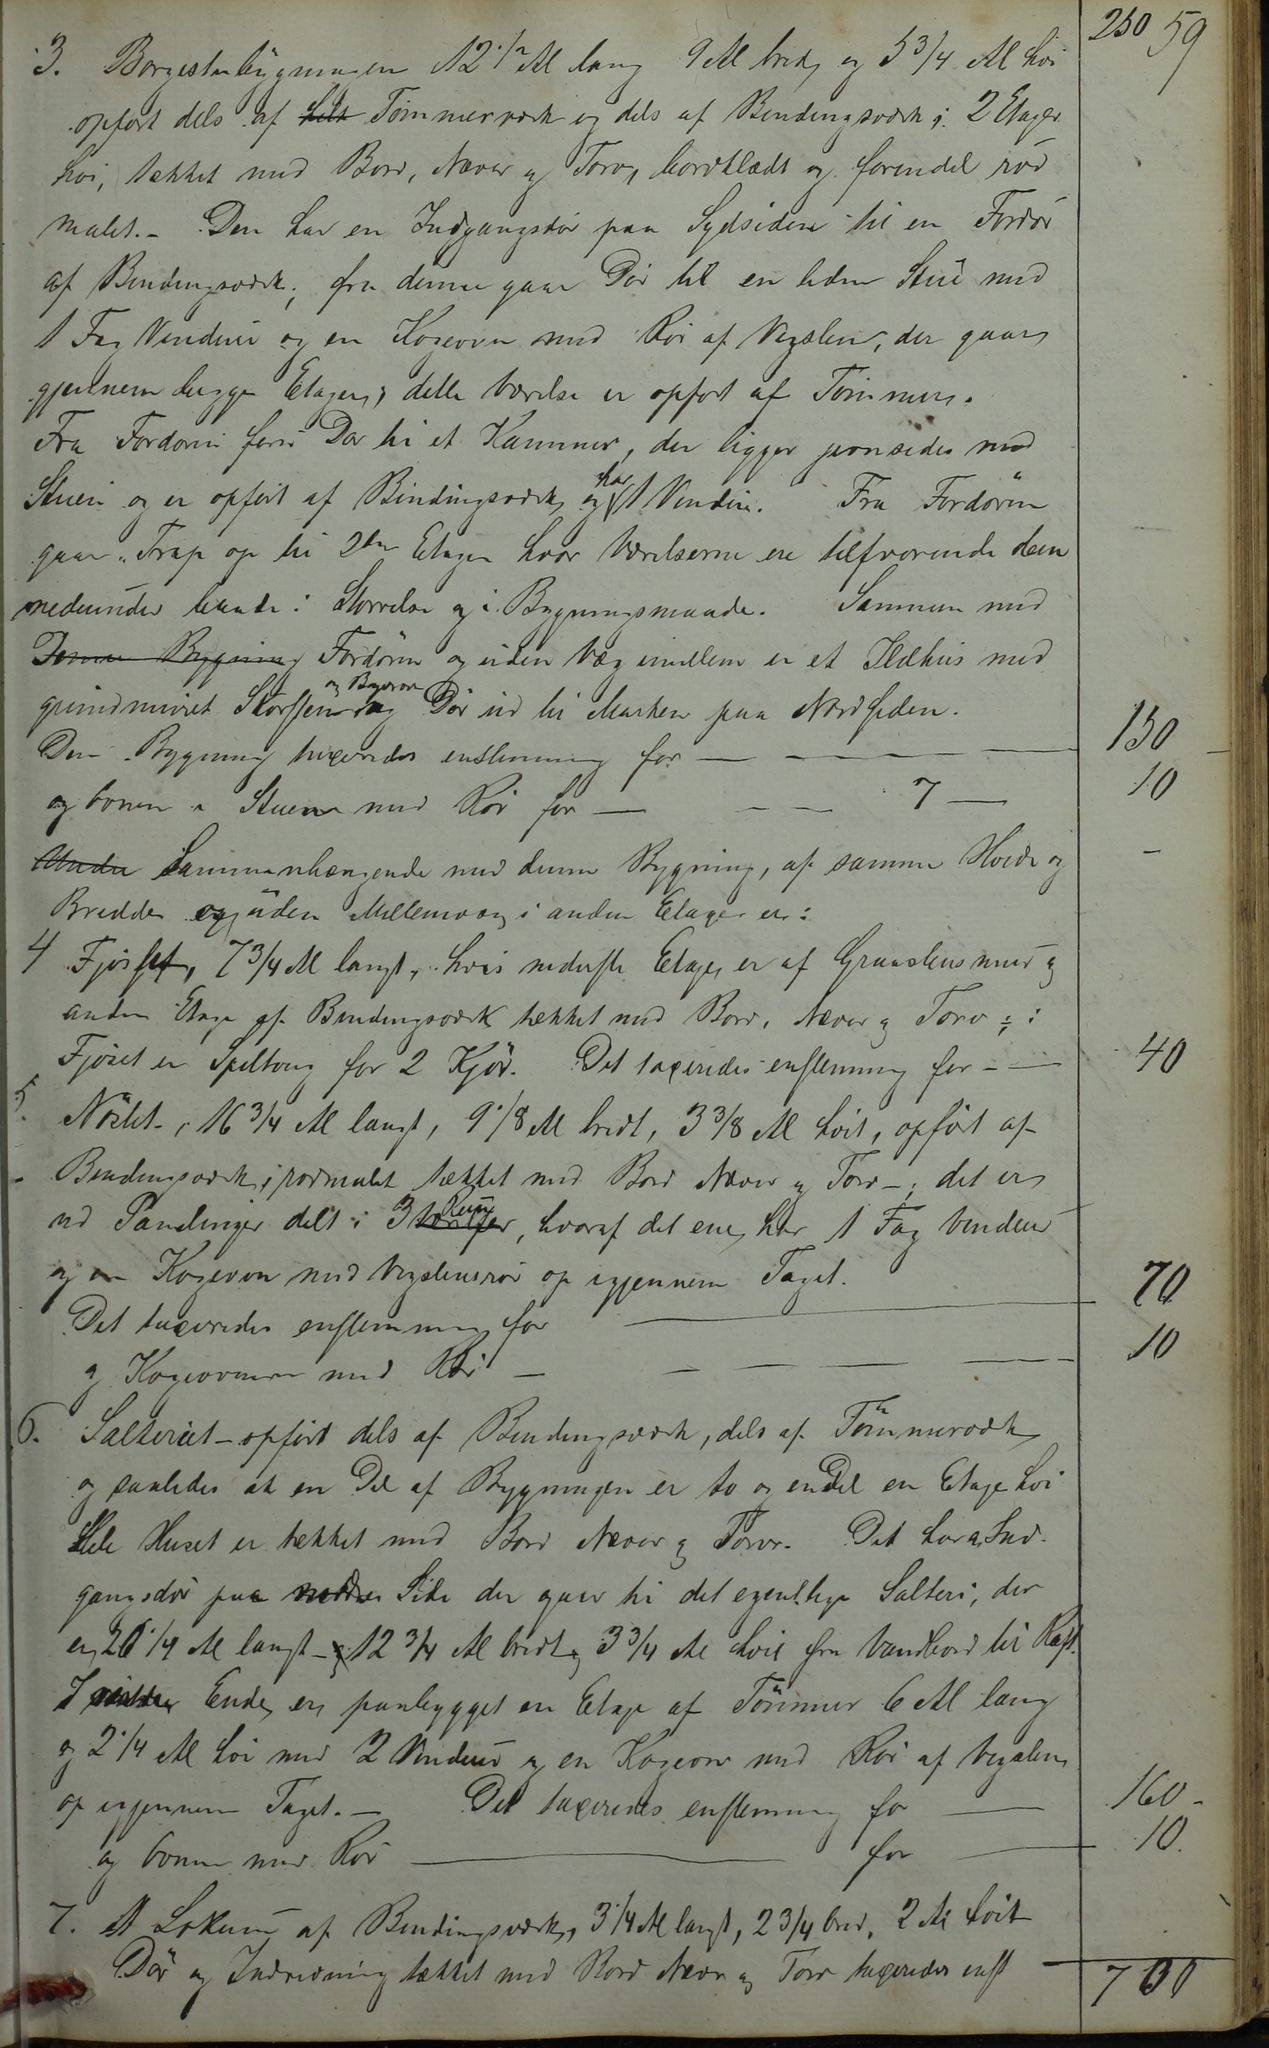 250 59
3. Borgestubygningen 12 1/2 Al lang 9 Al bred og 5 3/4 Al høi
opført dels af helt Tømmerværk og dels af Bindingsværk i 2 Etager
høi, tækket med Bord, Næver og Torv, bordklædt og forendel rød
malet. - Den har en Indgangsdør paa Sydsiden til en Fordør
af Bindingsværk; fra denne gaar Dør til en liden Stue med
1 Fag Vinduer og en Kogeovn med Rør af Vegsten, der gaar
gjennem begge Etager; dette Værelse er opført af Tømmer.
Fra Fordøren fører Dør til et Kammer, der ligger jevnsides med
Stuen og er opført af Bindingsværk og har 1 Vindue. Fra Fordøren
gaar Trap op til 2den Etage hvor Værelserne ere tilsvarende dem
nedunder baade i Størrelse og i Bygningsmaade. Sammen med
Denne Bygning Fordøren og uden Væg imellem er et Ildhus med
grundmuret Skorsten og Bagerovn og Dør ud til Marken paa Nordsiden.
Den Bygning taxeredes enstemmig for — — — 150 -
og Ovnen i Stuen med Rør for — — — 7 — 10
Under Sammenhængende med denne Bygning, af samme Høide og -
Bredde og uden Mellemvæg i anden Etage er:
4 Fjøset, 7 3/4 Al langt, hvis nederste Etage er af Graastensmur og
anden Etage af Bindingsværk tækket med Bord, Næver og Torv; i
Fjøset er Spiltoug for 2 Kjør. Det taxeredes enstemmig for - — 40
5. Nøstet, 16 3/4 Al langt, 9 1/8 Al bredt, 3 3/8 Al høit, opført af
Bindingsværk, rødmalet tækket med Bord Næver og Torv -; det er
ved Panelinger delt i 3 Rum, hvoraf det ene har 1 Fag Vinduer
og en Kogeovn med Vegstensrør op igjennem Taget.
Det taxeredes enstemmig for — 70
og Kogeovnen med Rør — — — — 10
6. Salteriet - opført dels af Bindingsværk, dels af Tømmerværk
og saaledes at en Del af Bygningen er to og en Del en Etage høi
Hele Huset er tækket med Bord Næver og Torv. Det har Ind-
gangsdør paa Side der gaar til det egentlige Salteri, der
er 20 1/4 Al langt - og 12 3/4 Al bredt og 3 3/4 Al høit fra Vandbord til Raft.
I Ende er paabygget en Etage af Tømmer 6 Al lang
og 2 1/4 Al høi med 2 Vinduer og en Kogeovn med Rør af Vegsten
op igjennem Taget. - Det taxeredes enstemmig for — 160 -
og Ovnen med Rør — for — 10.
7. Et Lokum af Bindingsværk, 3 1/4 Al langt, 2 3/4 bred, 2 Al høit
Dør og Indredning tækket med Bord Næver og Torv taxeredes enst
700